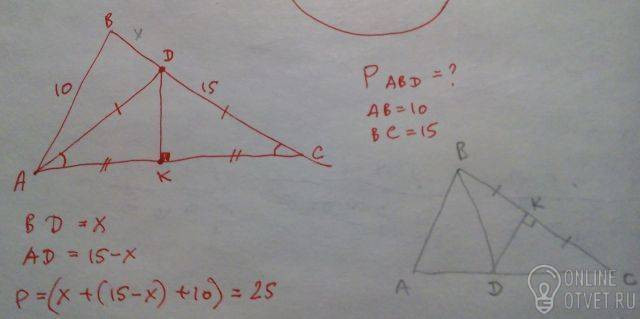 B
x
D
10
15
A
K
C
P ABD = ?
AB = 10
BC = 15
BD = x
AD = 15-x
P = (x + (15-x) + 10) = 25
B
K
A
D
C
ONLINE
OTVET.RU